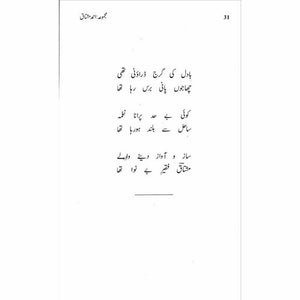 مجموعہ احمد مشتاق
31
بادل کی گرج ڈراؤنی تھی
چھاجوں پانی برس رہا تھا
کوئی بے حد پرانا نغمہ
ساحل سے بلند ہو رہا تھا
ساز و آواز دینے والے
مشتاق فقیر بے نوا تھا